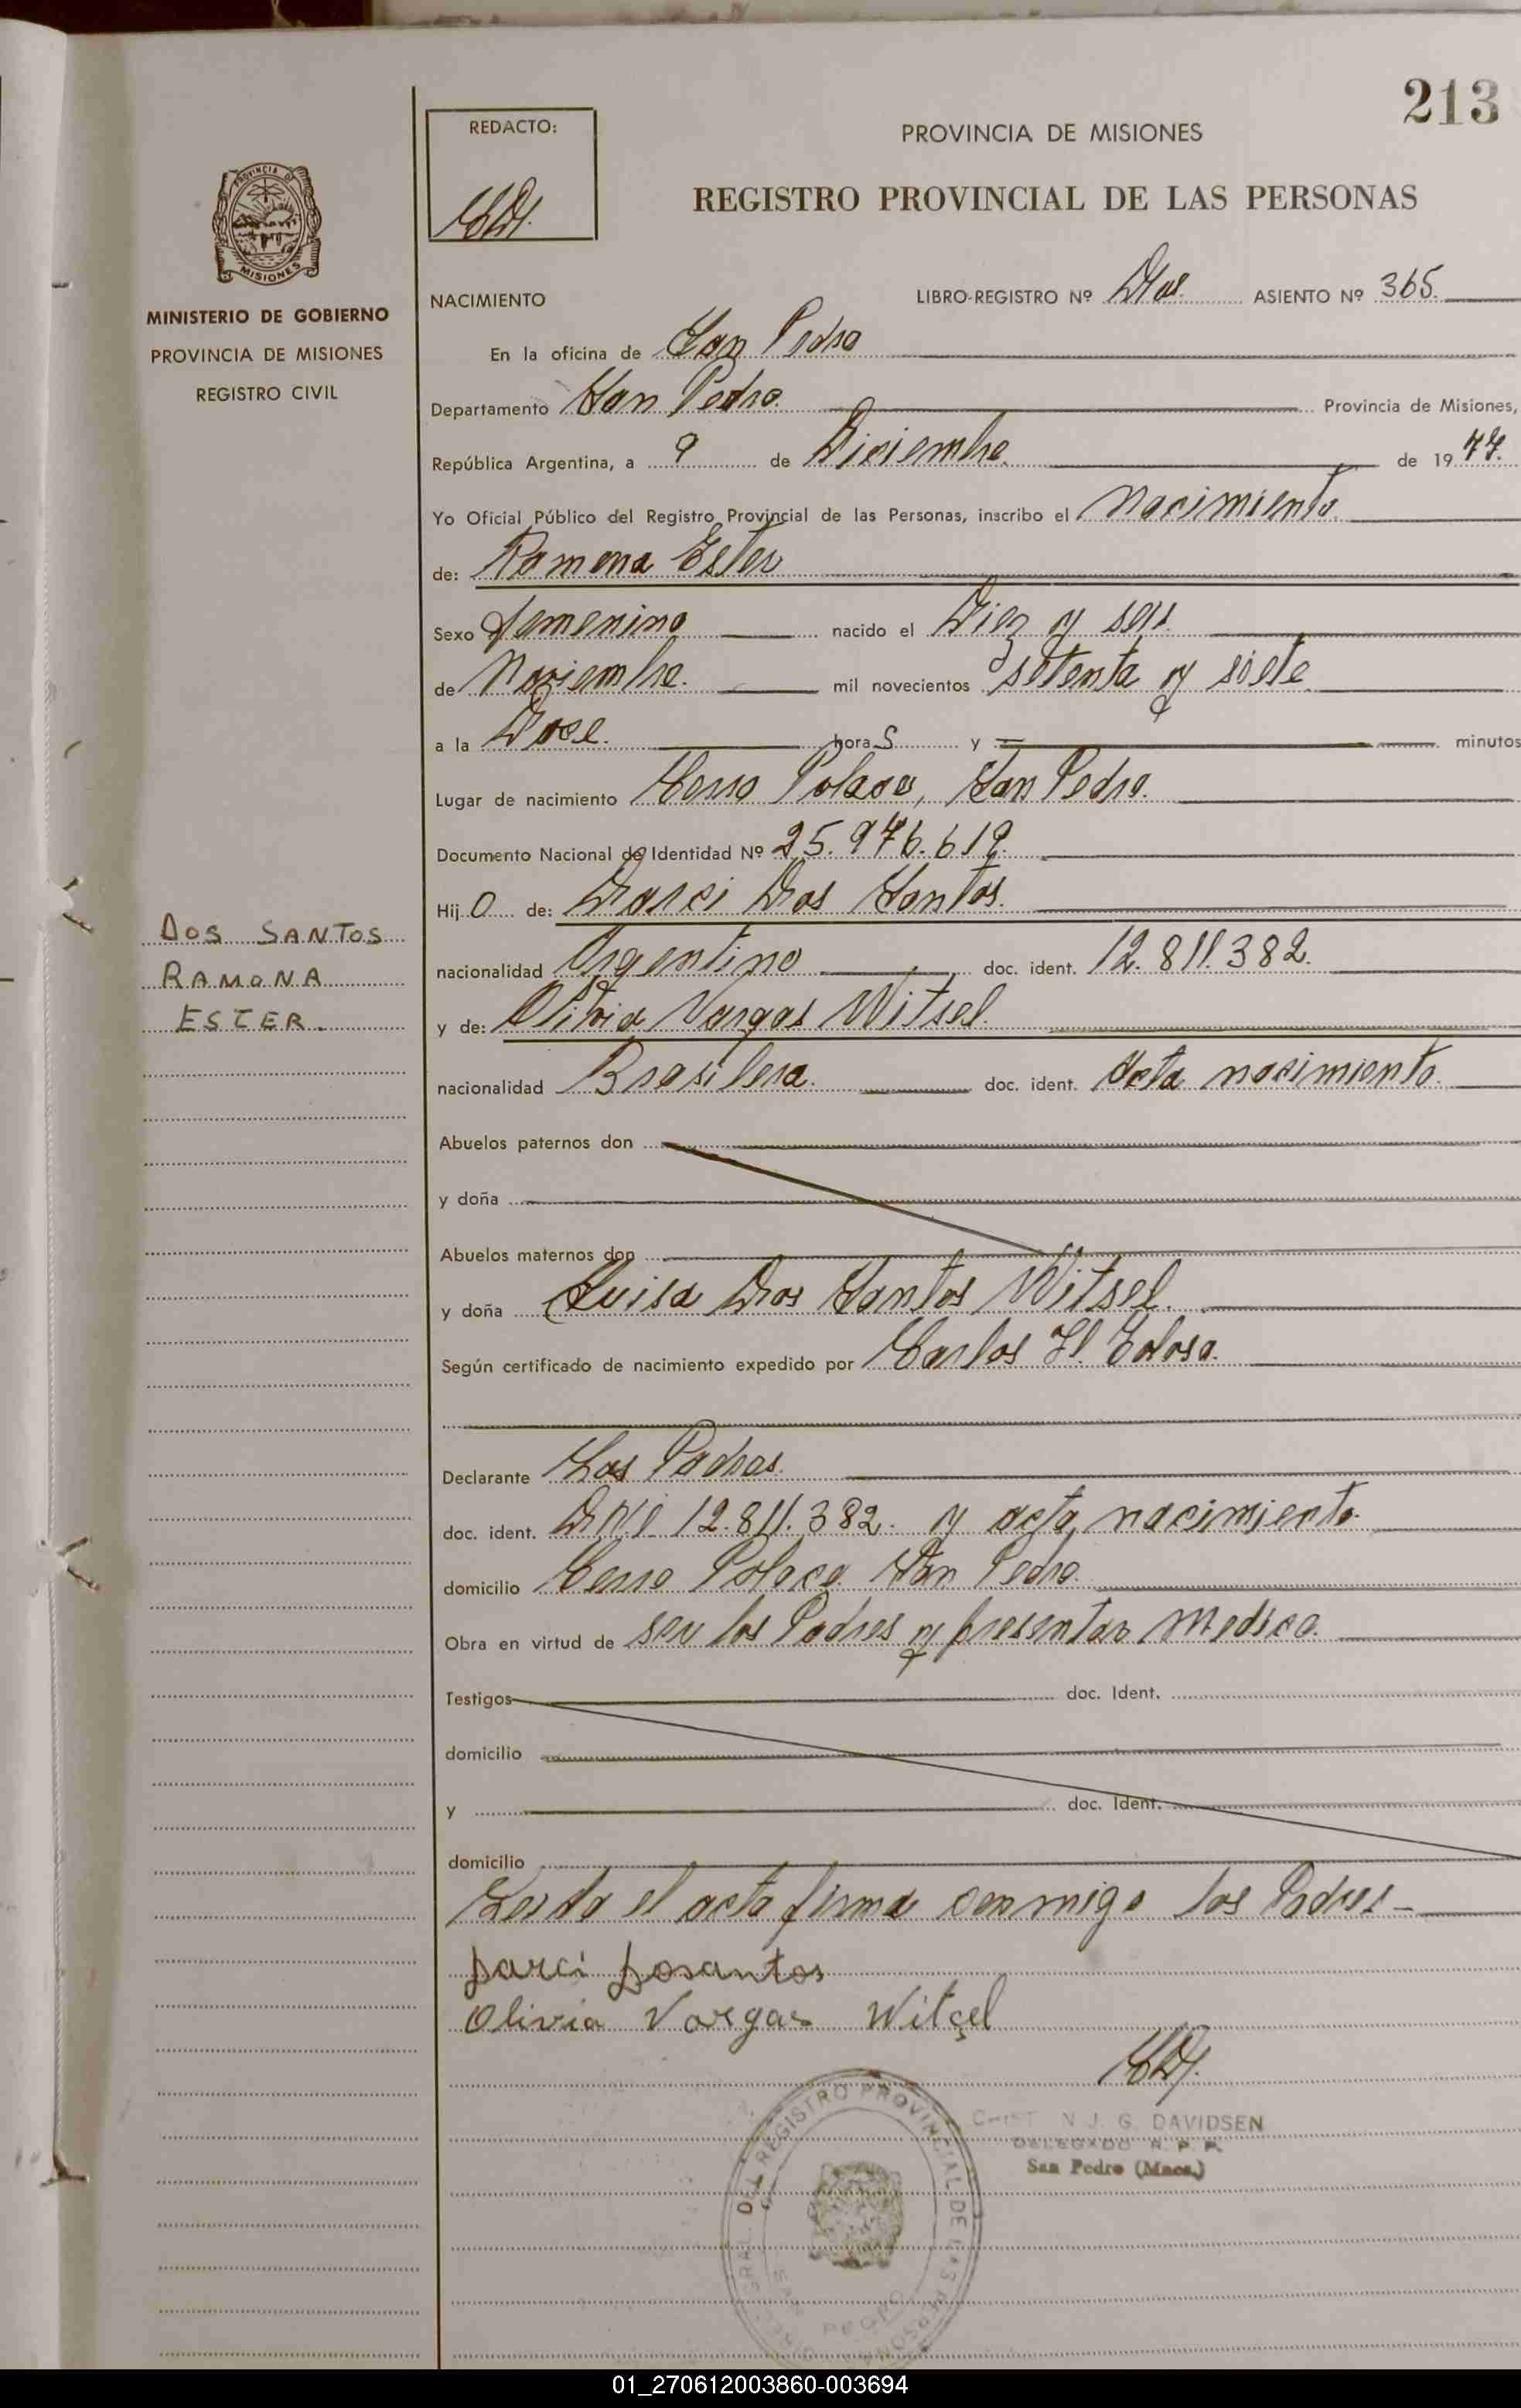 213
REDACTO:
PROVINCIA DE MISIONES
REGISTRO PROVINCIAL DE LAS PERSONAS
PROVINCIA DE
MISIONES
MINISTERIO DE GOBIERNO
PROVINCIA DE MISIONES
REGISTRO CIVIL
NACIMIENTO LIBRO-REGISTRO Nº Dos. ASIENTO Nº 365.
En la oficina de San Pedro
Departamento San Pedro. Provincia de Misiones,
República Argentina, a 9 de Diciembre. de 1977.
Yo Oficial Público del Registro Provincial de las Personas, inscribo el Nacimiento.
de: Ramona Ester
Sexo femenino nacido el Diez y seis
de Noviembre. mil novecientos setenta y siete.
a la Doce. horas y — minutos
Lugar de nacimiento Cerro Polaco, San Pedro.
Documento Nacional de Identidad Nº 25.976.619.
Hijo de: Darci Dos Santos.
nacionalidad Argentino doc. ident. 12.811.382.
y de: Olivia Vargas Witsel.
nacionalidad Brasilera. doc. ident. Acta nacimiento.
DOS SANTOS
RAMONA
ESTER.
Abuelos paternos don
y doña
Abuelos maternos don
y doña Luisa Dos Santos Witsel.
Según certificado de nacimiento expedido por Carlos
Declarante Los Padres.
doc. ident. DNI 12.811.382. y acta nacimiento.
domicilio Cerro Polaco San Pedro.
Obra en virtud de ser los Padres y presentar Medico.
Testigos doc. Ident.
domicilio
y doc. Ident.
domicilio
Leida el acta firma conmigo los Padres —
Darci Dosantos
Olivia Vargas Witçel
N J. G. DAVIDSEN
DELEGADO R. P. P.
San Pedro (Mnes.)
DEL REGISTRO PROVINCIAL DE LAS PERSONAS
SAN PEDRO
01_270612003860-003694